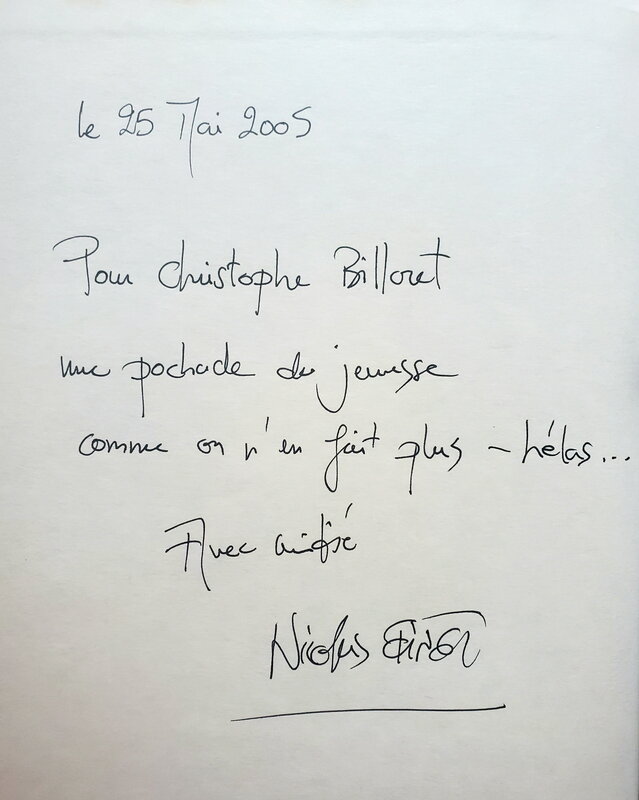 le 25 Mai 2005
Pour Christophe Billoret
une pochade de jeunesse
comme on n'en fait plus - hélas...
Avec amitié
Nicolas